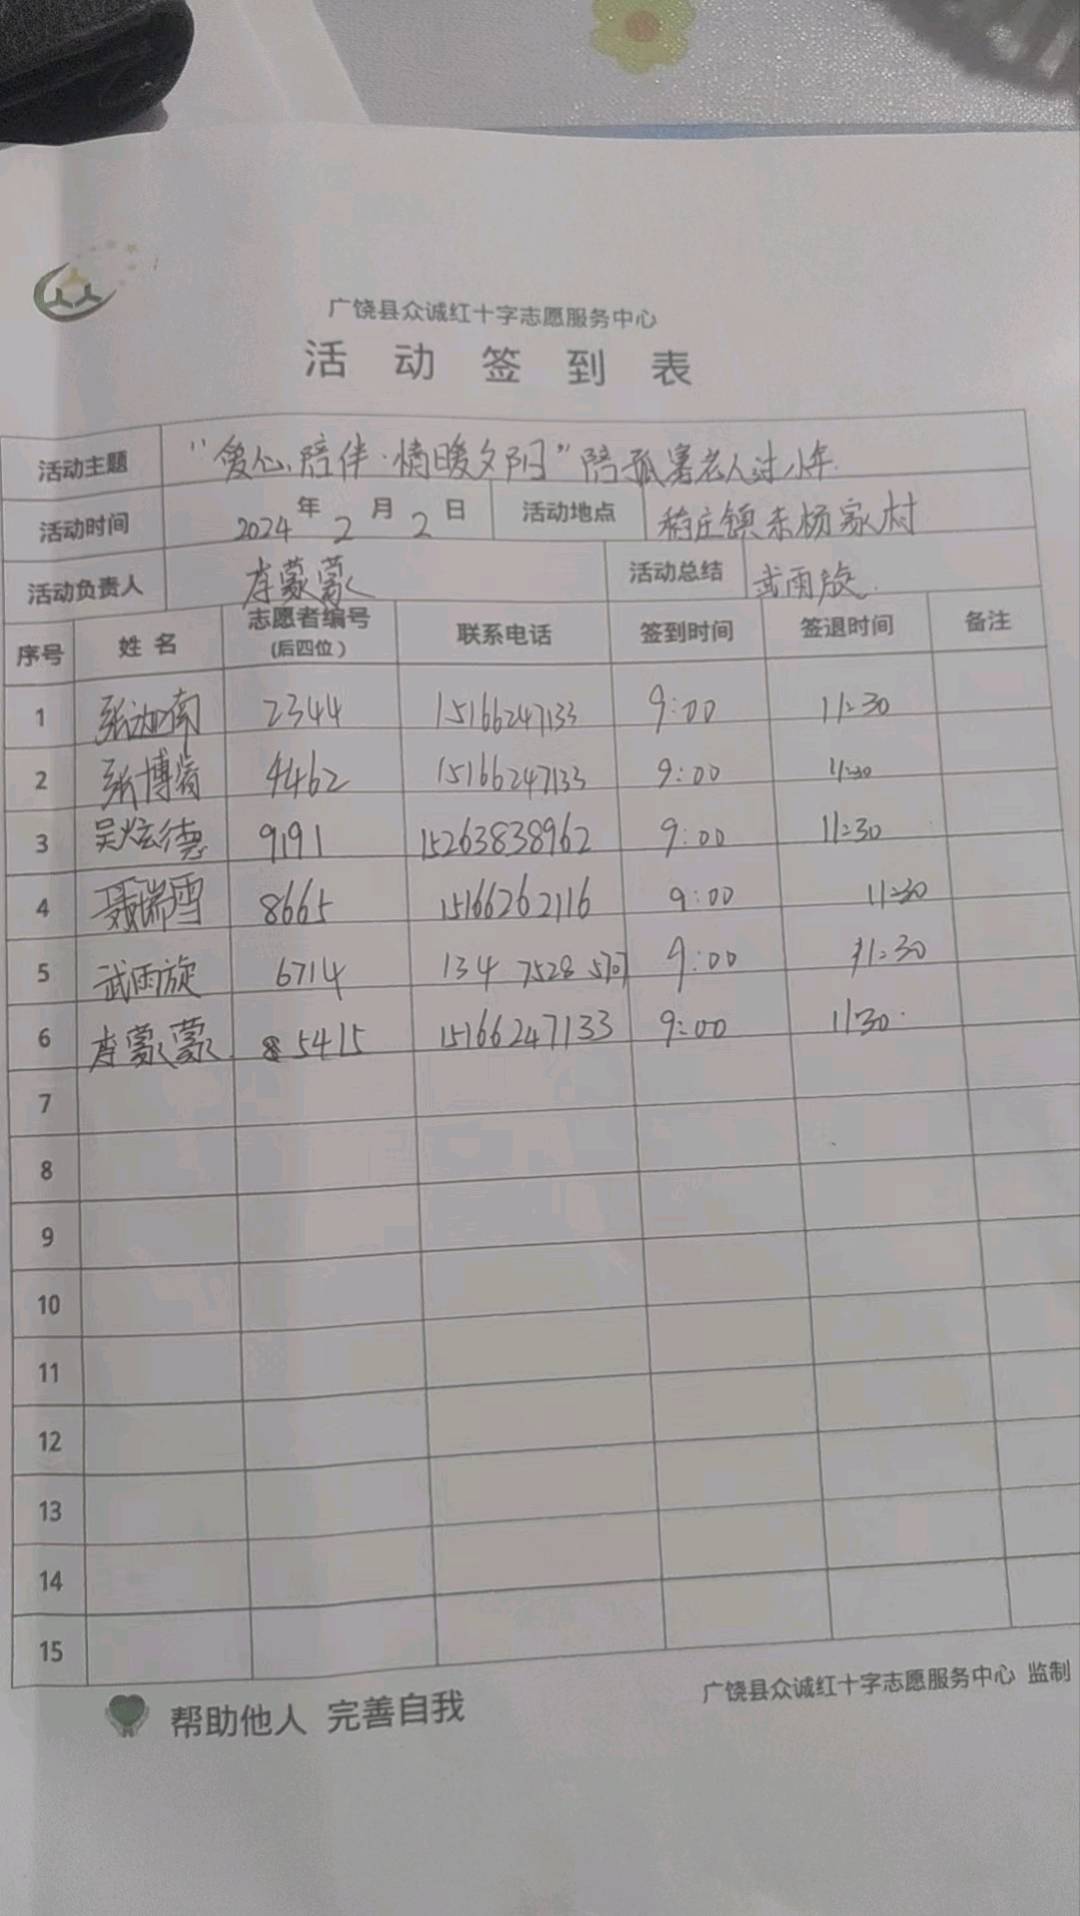 广饶县众诚红十字志愿服务中心
活动签到表
活动主题 "爱心陪伴·情暖夕阳"陪孤寡老人过小年
活动时间 2024年2月2日 活动地点 稻庄镇东杨家村
活动负责人 李蒙蒙 活动总结 武雨旋
序号 姓名 志愿者编号(后四位) 联系电话 签到时间 签退时间 备注
1 张迦南 2344 15166247133 9:00 11:30
2 张博 4462 15166247133 9:00 11:30
3 吴炫德 9191 15263838962 9:00 11:30
4 聂瑞雪 8665 15166262116 9:00 11:30
5 武雨旋 6714 134 7528 5707 9:00 11:30
6 李蒙蒙 5415 15166247133 9:00 11:30
7
8
9
10
11
12
13
14
15
帮助他人 完善自我 广饶县众诚红十字志愿服务中心 监制